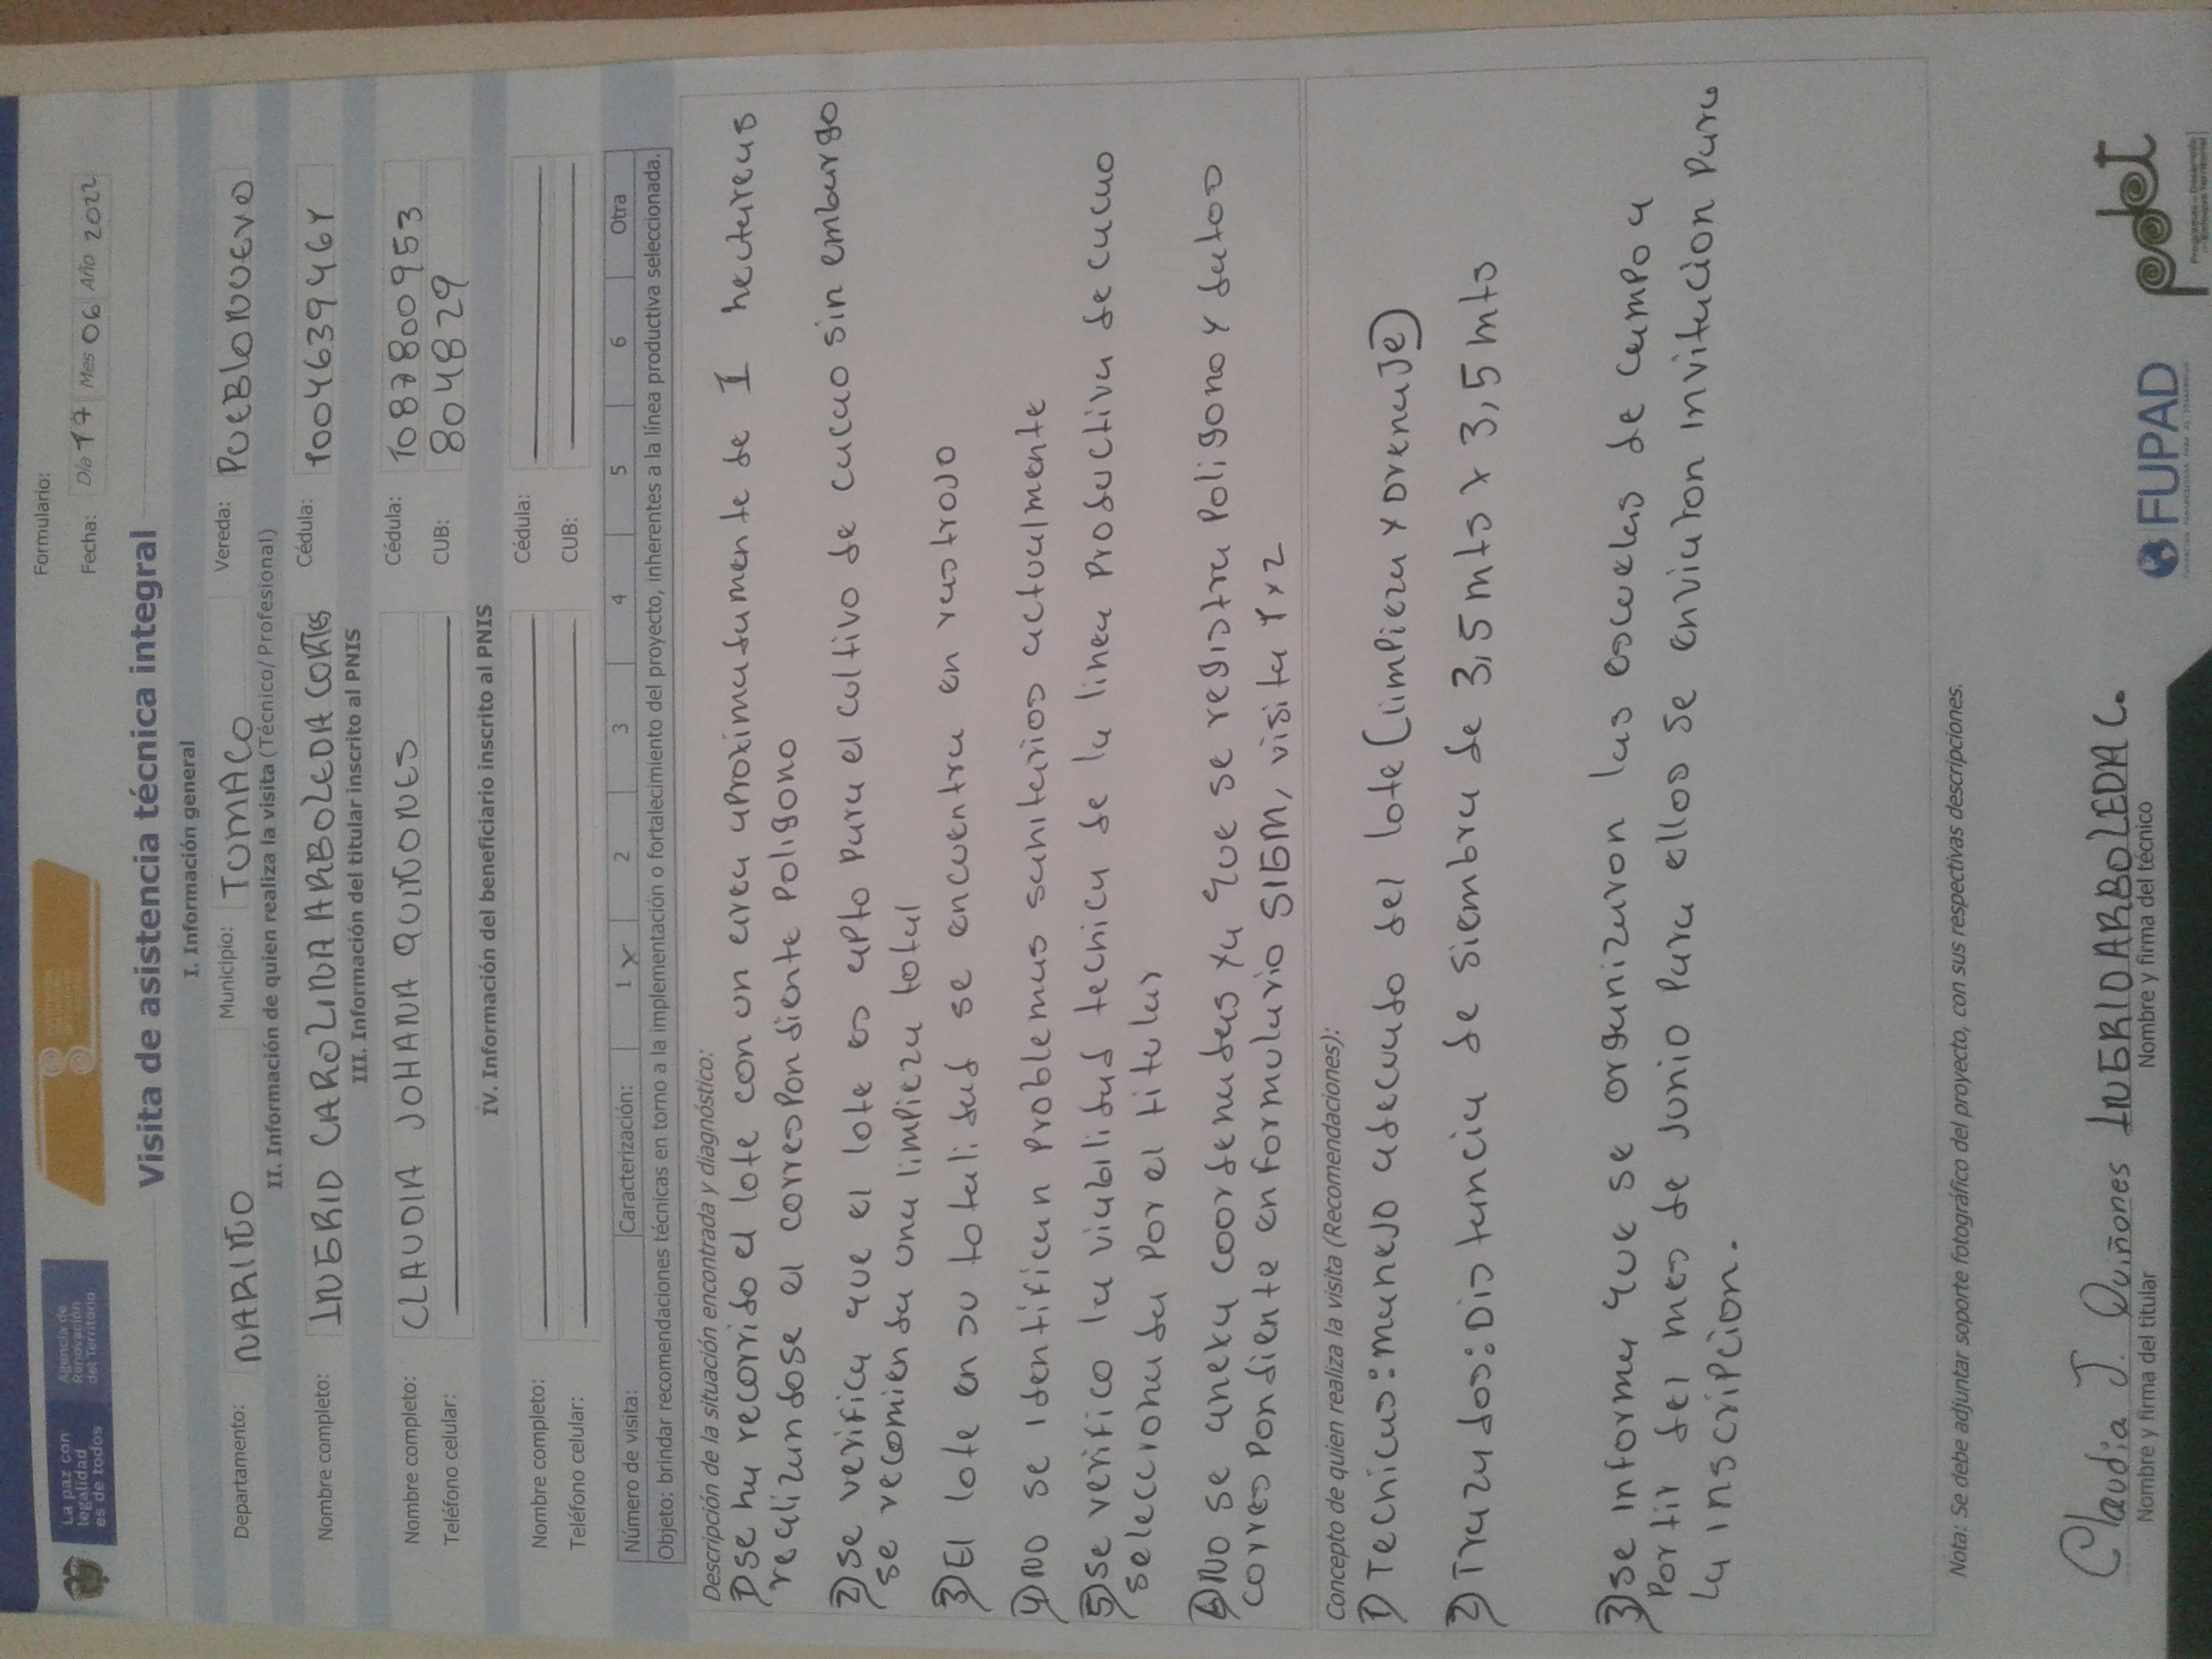 La paz con
legalidad
es de todos
Agencia de
Renovación
del Territorio
Formulario:
Fecha: Día 17 Mes 06 Año 2022
Visita de asistencia técnica integral
I. Información general
Departamento: NARIÑO Municipio: TUMACO Vereda: PUEBLO NUEVO
II. Información de quien realiza la visita (Técnico/ Profesional)
Nombre completo: INGRID CAROLINA ARBOLEDA CORTES Cédula: 1004639461
III. Información del titular inscrito al PNIS
Nombre completo: CLAUDIA JOHANA QUIÑONES Cédula: 1087800953
Teléfono celular: CUB: 804829
IV. Información del beneficiario inscrito al PNIS
Nombre completo: Cédula:
Teléfono celular: CUB:
Número de visita: Caracterización: 1 x 2 3 4 5 6 Otra
Objeto: brindar recomendaciones técnicas en torno a la implementación o fortalecimiento del proyecto, inherentes a la línea productiva seleccionada.
Descripción de la situación encontrada y diagnóstico:
1) se ha recorrido el lote con un area aproximadamente de 1 hectareas
realizandose el correspondiente poligono
2) se verifica que el lote es apto para el cultivo de cacao sin embargo
se recomienda una limpieza total
3) El lote en su totalidad se encuentra en rastrojo
4) No se identifican problemas sanitarios actualmente
5) se verifico la viabilidad tecnica de la linea productiva de cacao
seleccionada por el titular
6) No se aneka coordenadas ya que se registra poligono y datos
correspondiente en formulario SIGM, visita 1 x 2
Concepto de quien realiza la visita (Recomendaciones):
1) Tecnicas: manejo adecuado del lote (limpieza y Drenaje)
2) Trazados: Distancia de siembra de 3,5 mts x 3,5 mts
3) se informa que se organizaron las escuelas de campo a
portir del mes de junio para ellos se enviaron invitacion para
la inscripcion.
Nota: Se debe adjuntar soporte fotográfico del proyecto, con sus respectivas descripciones.
Claudia J. Quiñones INGRID ARBOLEDA C.
Nombre y firma del titular Nombre y firma del técnico
FUPAD
pdet